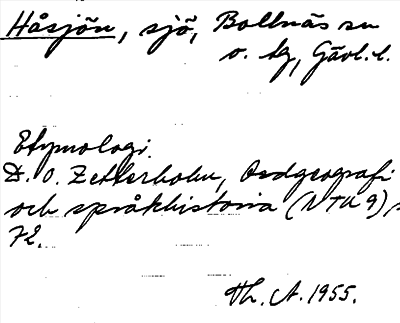 Håsjön, sjö, Bollnäs sn
o. tg, Gävl. l.
Etymologi.
D. O. Zetterholm, Ordgeografi
och språkhistoria (NTU 9), s.
72.
Th. A. 1955.